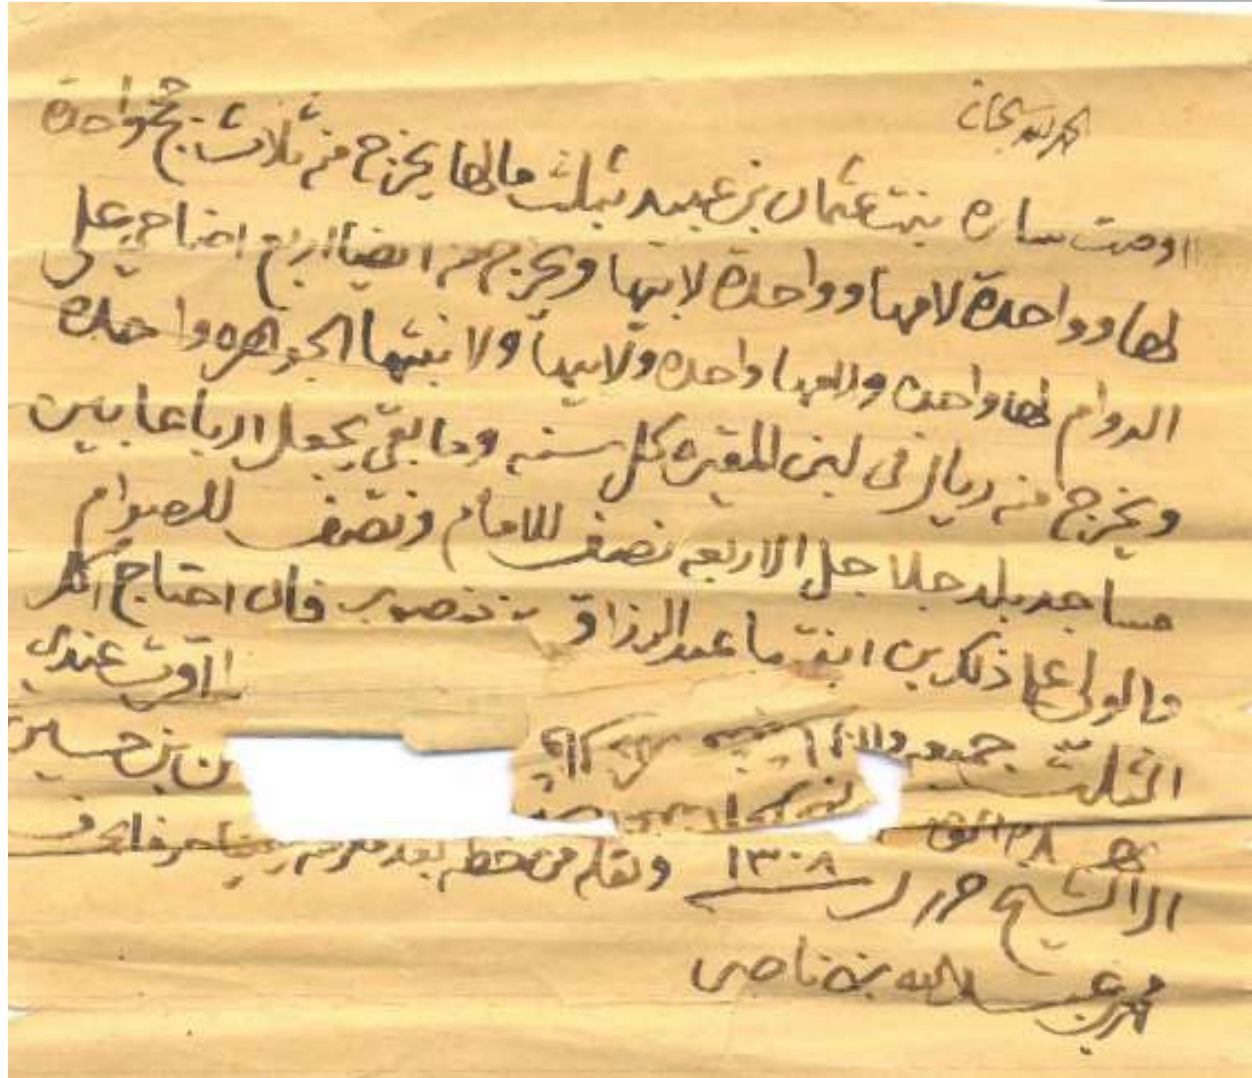 الحمد لله سبحانه
اوصت ساره بنت عثمان بن عبيد بثلث مالها يخرج منه ثلاث حجج واحدة
لها وواحدة لامها وواحدة لابيها ويخرج منه ايضا اربع اضاحي على
الدوام لها واحده ولامها واحده ولابيها ولابنتها الجوهره واحده
ويخرج منه ريال في لبن للمقبره كل سنه وما بقي يجعل ارباعا بين
مساجد بلد جلاجل الاربعه نصف للامام ونصف للصوام
والولي على ذلك بن ابنتها عبدالرزاق فان احتاج اكل
الثلث جميعه عندي
بن حسين
ال الشيخ حرر ١٣٠٨ ونقله من خطه بعد معرفته حرفا بحرف
محمد بن عبدالله بن ناصر